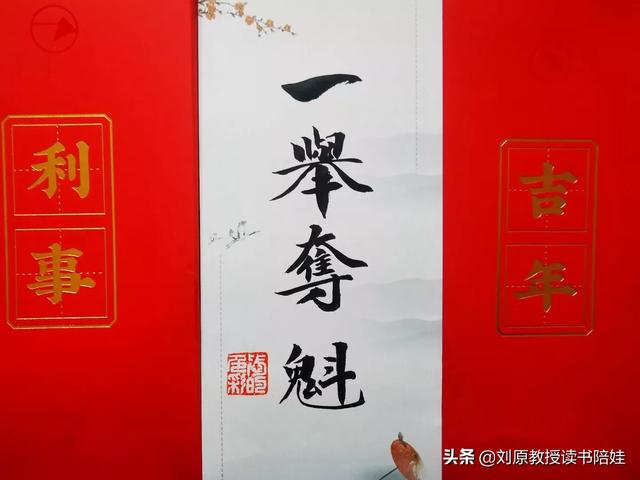 利事
一舉奪魁
吉年
头条 @刘原教授读书陪娃